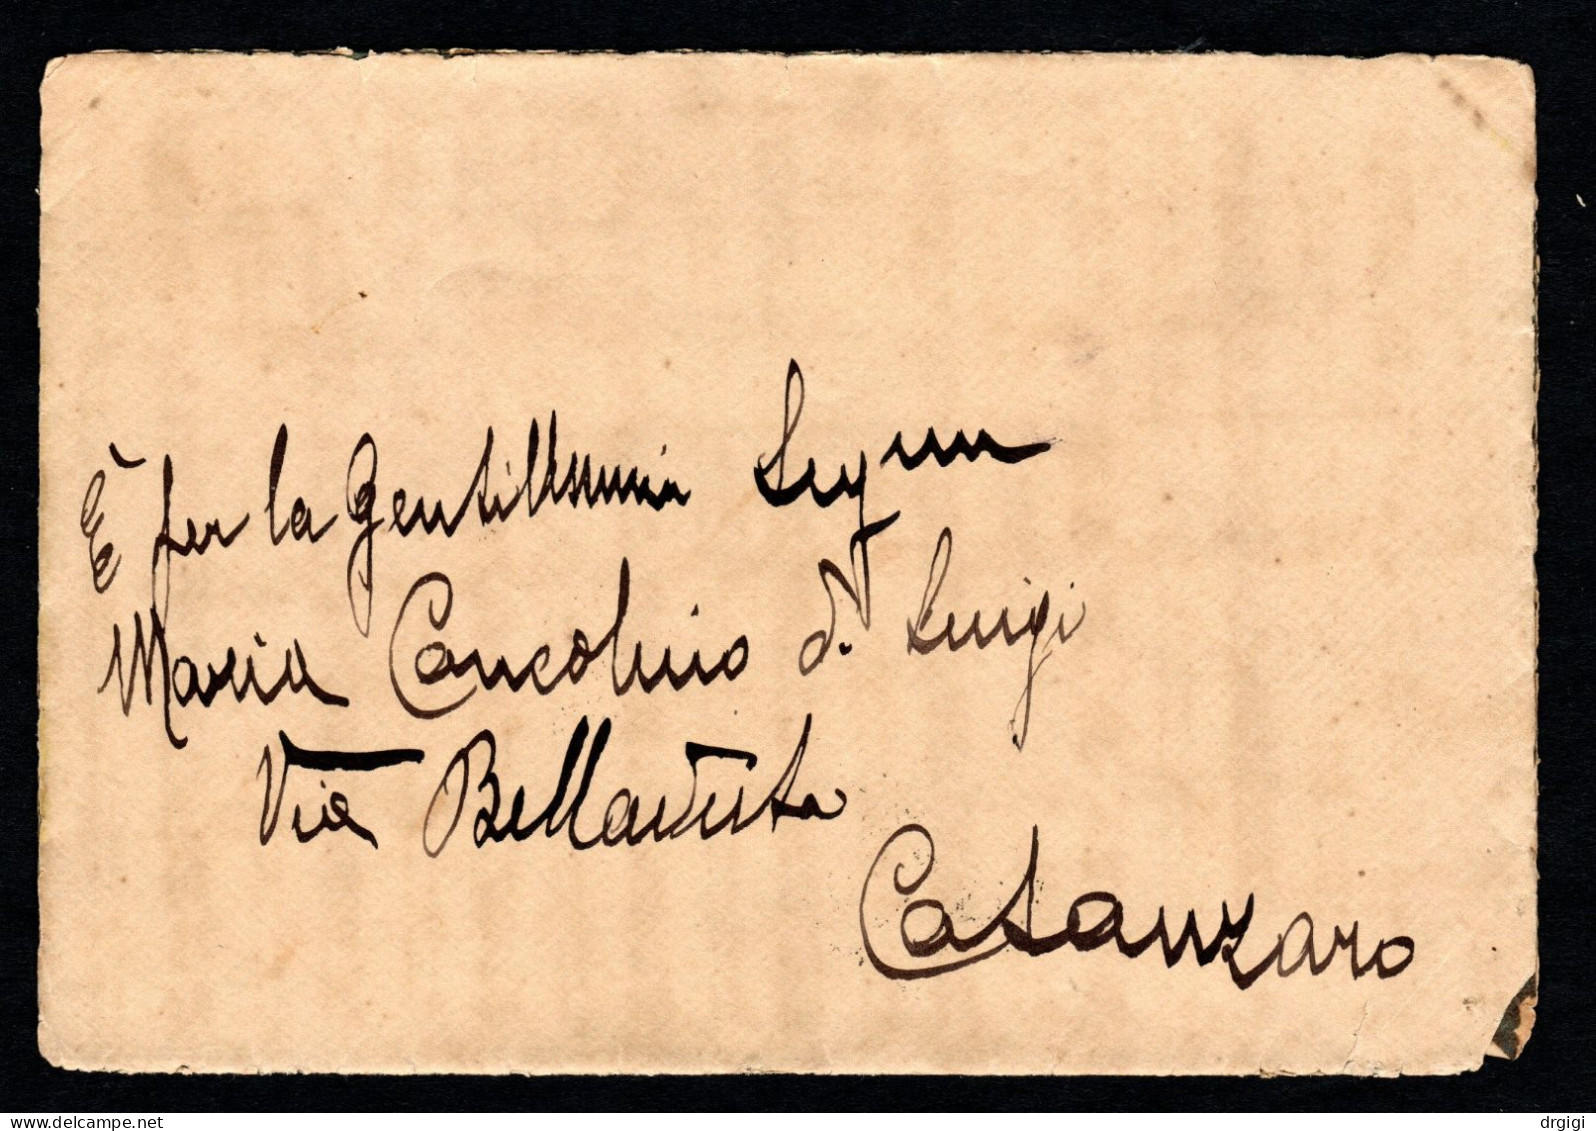 È per la Gentillissima Sigra
Maria Concolino di Luigi
Via Bellavista
Catanzaro
delcampe.net
drgigi